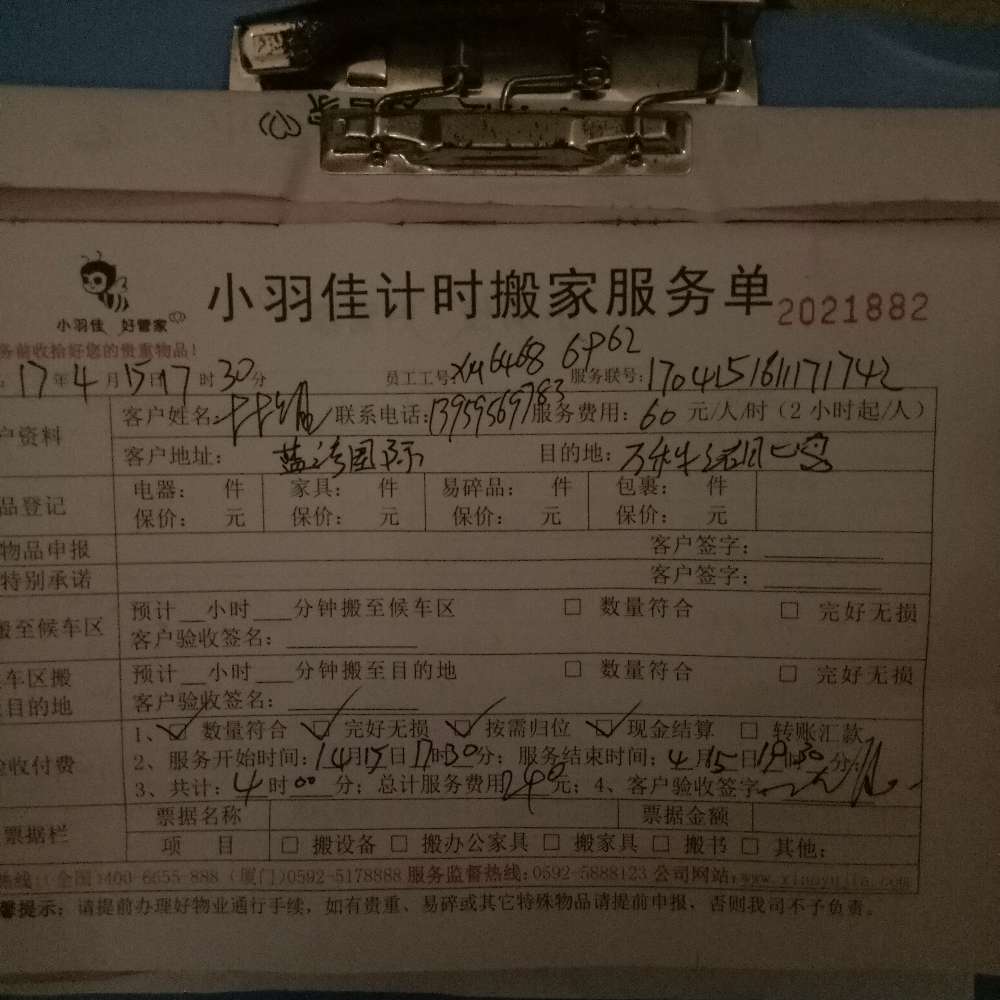 小羽佳 好管家
小羽佳计时搬家服务单 2021882
务前收拾好您的贵重物品!
17年4月15日17时30分 员工工号: 6468 6962 服务联号:1704151611171742
户资料 客户姓名: 联系电话:13959569783 服务费用:60元/人/时(2小时起/人)
客户地址: 蓝湾国际 目的地:
品登记 电器: 件 家具: 件 易碎品: 件 包裹: 件
保价: 元 保价: 元 保价: 元 保价: 元
物品申报 客户签字:
特别承诺 客户签字:
搬至候车区 预计__小时___分钟搬至候车区 □ 数量符合 □ 完好无损
客户验收签名:
车区搬 预计__小时___分钟搬至目的地 □ 数量符合 □ 完好无损
目的地 客户验收签名:
1、☑ 数量符合 ☑ 完好无损 ☑ 按需归位 ☑ 现金结算 □ 转账汇款
验收付费 2、服务开始时间:4月15日17时30分; 服务结束时间:4月15日19时30分;
3、共计:4时00分;总计服务费用240元;4、客户验收签字
票据栏 票据名称 票据金额
项 目 □ 搬设备 □ 搬办公家具 □ 搬家具 □ 搬书 □ 其他:
热线:(全国)400-6655-888 (厦门)0592-5178888 服务监督热线:0592-5888123 公司网站:www.xiaoyujia.com
馨提示:请提前办理好物业通行手续,如有贵重、易碎或其它特殊物品请提前申报,否则我司不予负责。